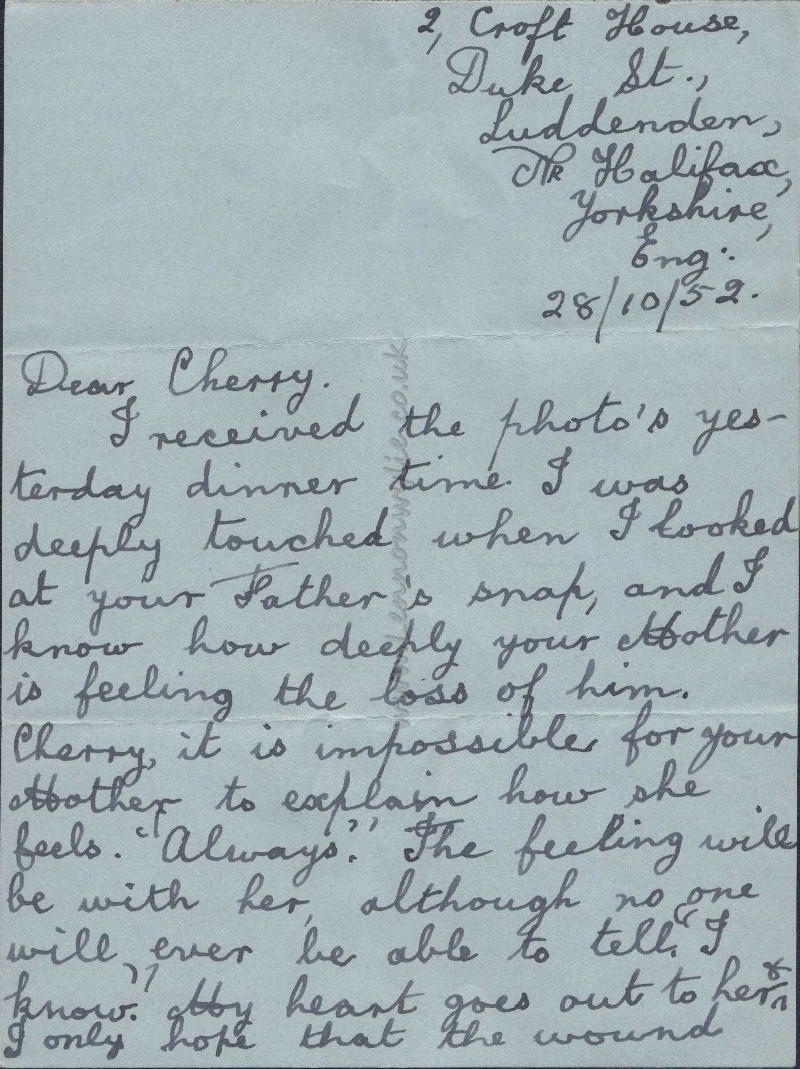 2, Croft House,
Duke St.,
Luddenden,
Nr Halifax,
Yorkshire,
Eng.
28/10/52.
Dear Cherry.
I received the photo's yes-
terday dinner time. I was
deeply touched when I looked
at your Father's snap, and I
know how deeply your Mother
is feeling the loss of him.
Cherry, it is impossible for your
Mother to explain how she
feels. "Always." The feeling will
be with her, although no one
will ever be able to tell. "I
know." My heart goes out to her &
I only hope that the wound